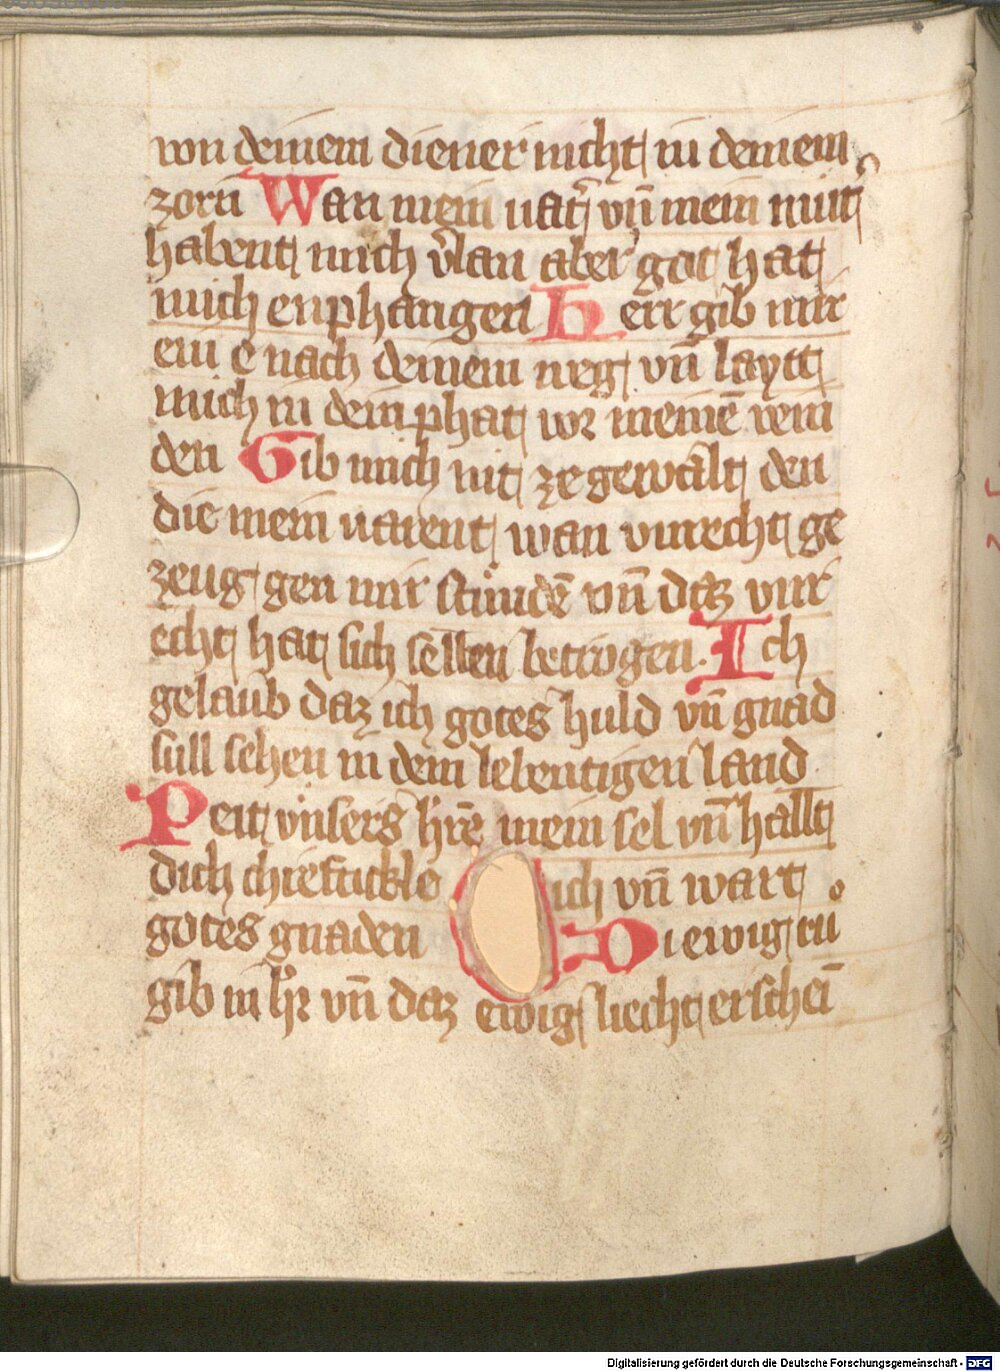 von deinem diener nicht in deinem
zorn Wan mein uat᷑ vn̄ mein mut᷑
habent mich v᷑lan aber got hat
mich enphangen Herr gib mir
ein e nach deinem weg vn̄ laytt
mich in dein phat vor meinē vein
den Gib mich nit ze gewalt den
die mein uarent wan vnrecht ge
zeug gen mir stundē vn̄ daz vnr
echt hat sich selben betrogen. Ich
gelaub daz ich gotes huld vn̄ gnad
sull sehen in dem lebentigen land
Peit vnsers hr̄e mein sel vn̄ hallt
dich ich vn̄ wart
gotes gnaden Di ewig rů
gib in hr̄ vn̄ daz ewig liecht erschei
Digitalisierung gefördert durch die Deutsche Forschungsgemeinschaft - DFG